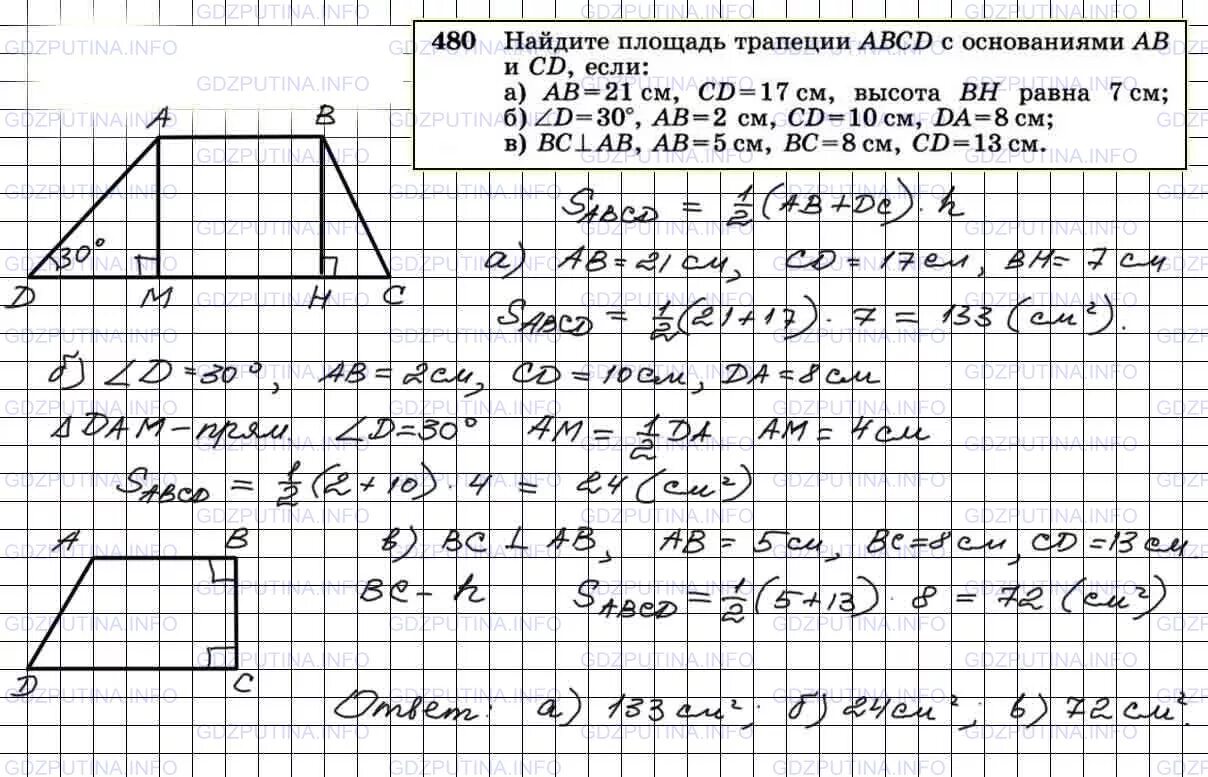 480 Найдите площадь трапеции ABCD с основаниями AB
и CD, если:
а) AB=21 см, CD=17 см, высота BH равна 7 см;
б) ∠D=30°, AB=2 см, CD=10 см, DA=8 см;
в) BC⊥AB, AB=5 см, BC=8 см, CD=13 см.
A B
30°
D M H C
S_ABCD = 1/2 (AB+DC) · h
а) AB = 21 см, CD = 17 см, BH = 7 см
S_ABCD = 1/2 (21+17) · 7 = 133 (см²).
б) ∠D = 30°, AB = 2 см, CD = 10 см, DA = 8 см
△DAM – прям. ∠D = 30° AM = 1/2 DA AM = 4 см
S_ABCD = 1/2 (2+10) · 4 = 24 (см²)
A B
D C
в) BC ⊥ AB, AB = 5 см, BC = 8 см, CD = 13 см
BC – h S_ABCD = 1/2 (5+13) · 8 = 72 (см²)
Ответ: а) 133 см²; б) 24 см²; в) 72 см².
GDZPUTINA.INFO